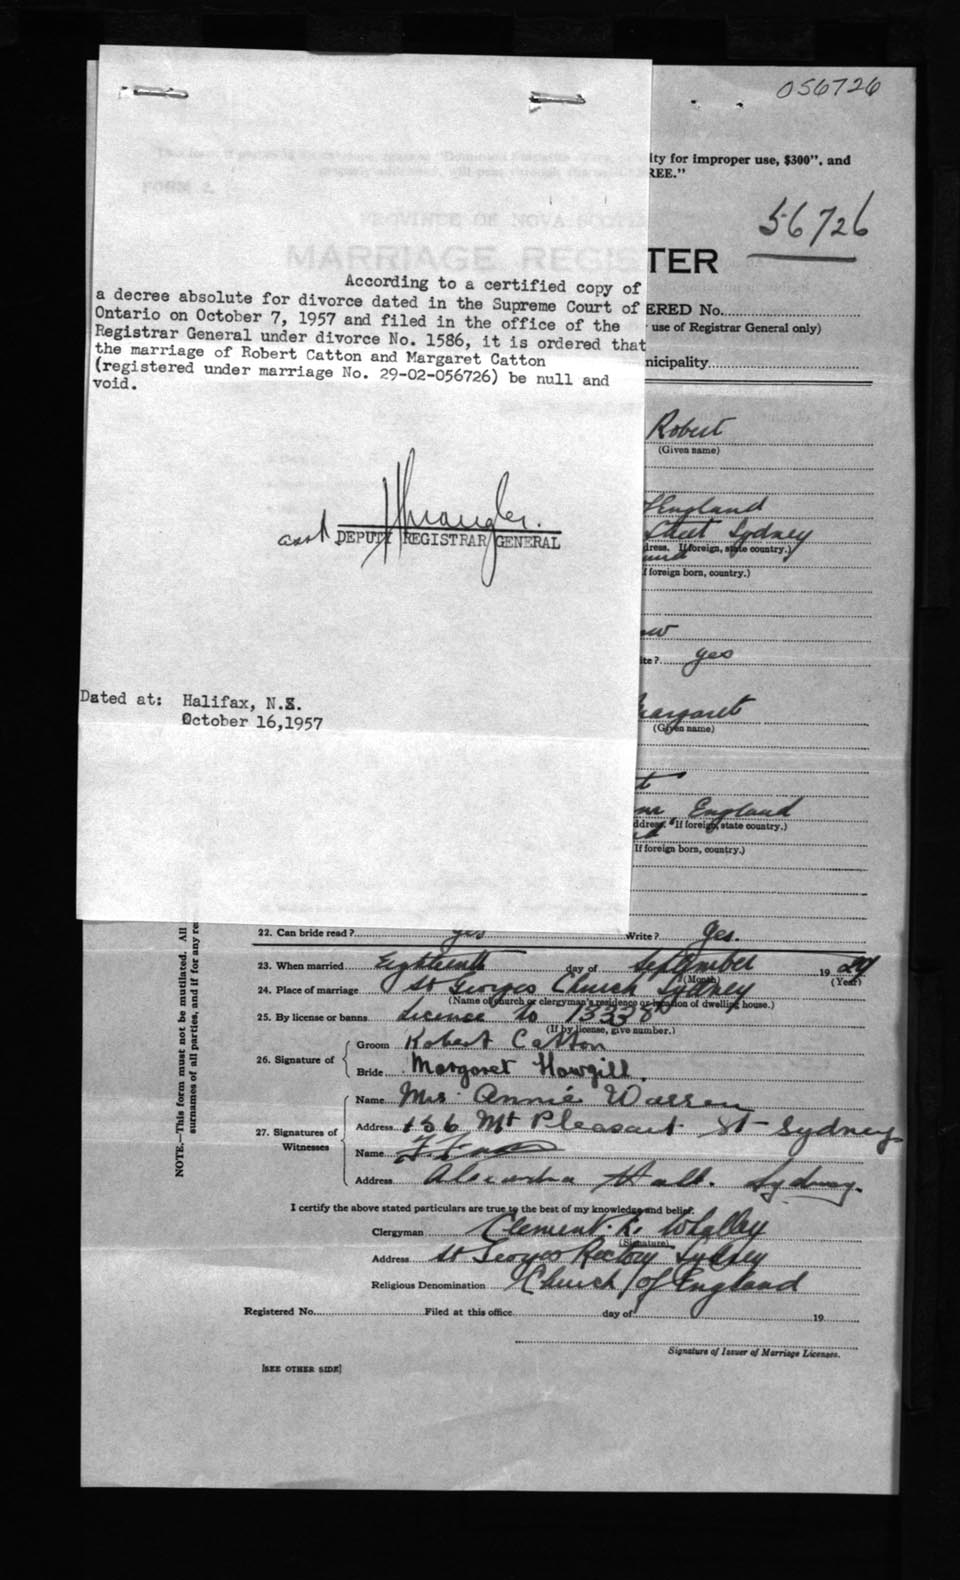 056726
lty for improper use, $300", and
REE."
56726
TER
ERED No.
use of Registrar General only)
nicipality
According to a certified copy of
a decree absolute for divorce dated in the Supreme Court of
Ontario on October 7, 1957 and filed in the office of the
Registrar General under divorce No. 1586, it is ordered that
the marriage of Robert Catton and Margaret Catton
(registered under marriage No. 29-02-056726) be null and
void.
Robert
(Given name)
England
Street Sydney
dress. If foreign, state country.)
f foreign born, country.)
asst DEPUTY REGISTRAR GENERAL
ite? yes
Dated at: Halifax, N.S.
October 16,1957
argaret
(Given name)
England
ddress. If foreign, state country.)
If foreign born, country.)
22. Can bride read? yes Write? Yes.
23. When married Eighteenth day of September 1929
(Month) (Year)
24. Place of marriage St Georges Church Sydney
(Name of church or clergyman's residence or location of dwelling house.)
25. By license or banns Licence No 13338
(If by license, give number.)
26. Signature of
Groom Robert Catton
Bride Margaret Howgill.
27. Signatures of Witnesses
Name Mrs. Annie Warren
Address 136 Mt Pleasant St Sydney
Name
Address Alexandra Hall. Sydney.
I certify the above stated particulars are true to the best of my knowledge and belief.
Clergyman Clement R. Whalley
(Signature)
Address St Georges Rectory Sydney
Religious Denomination Church of England
Registered No. Filed at this office day of 19
Signature of Issuer of Marriage Licenses.
[SEE OTHER SIDE]
NOTE.—This form must not be mutilated. All
surnames of all parties, and if for any re